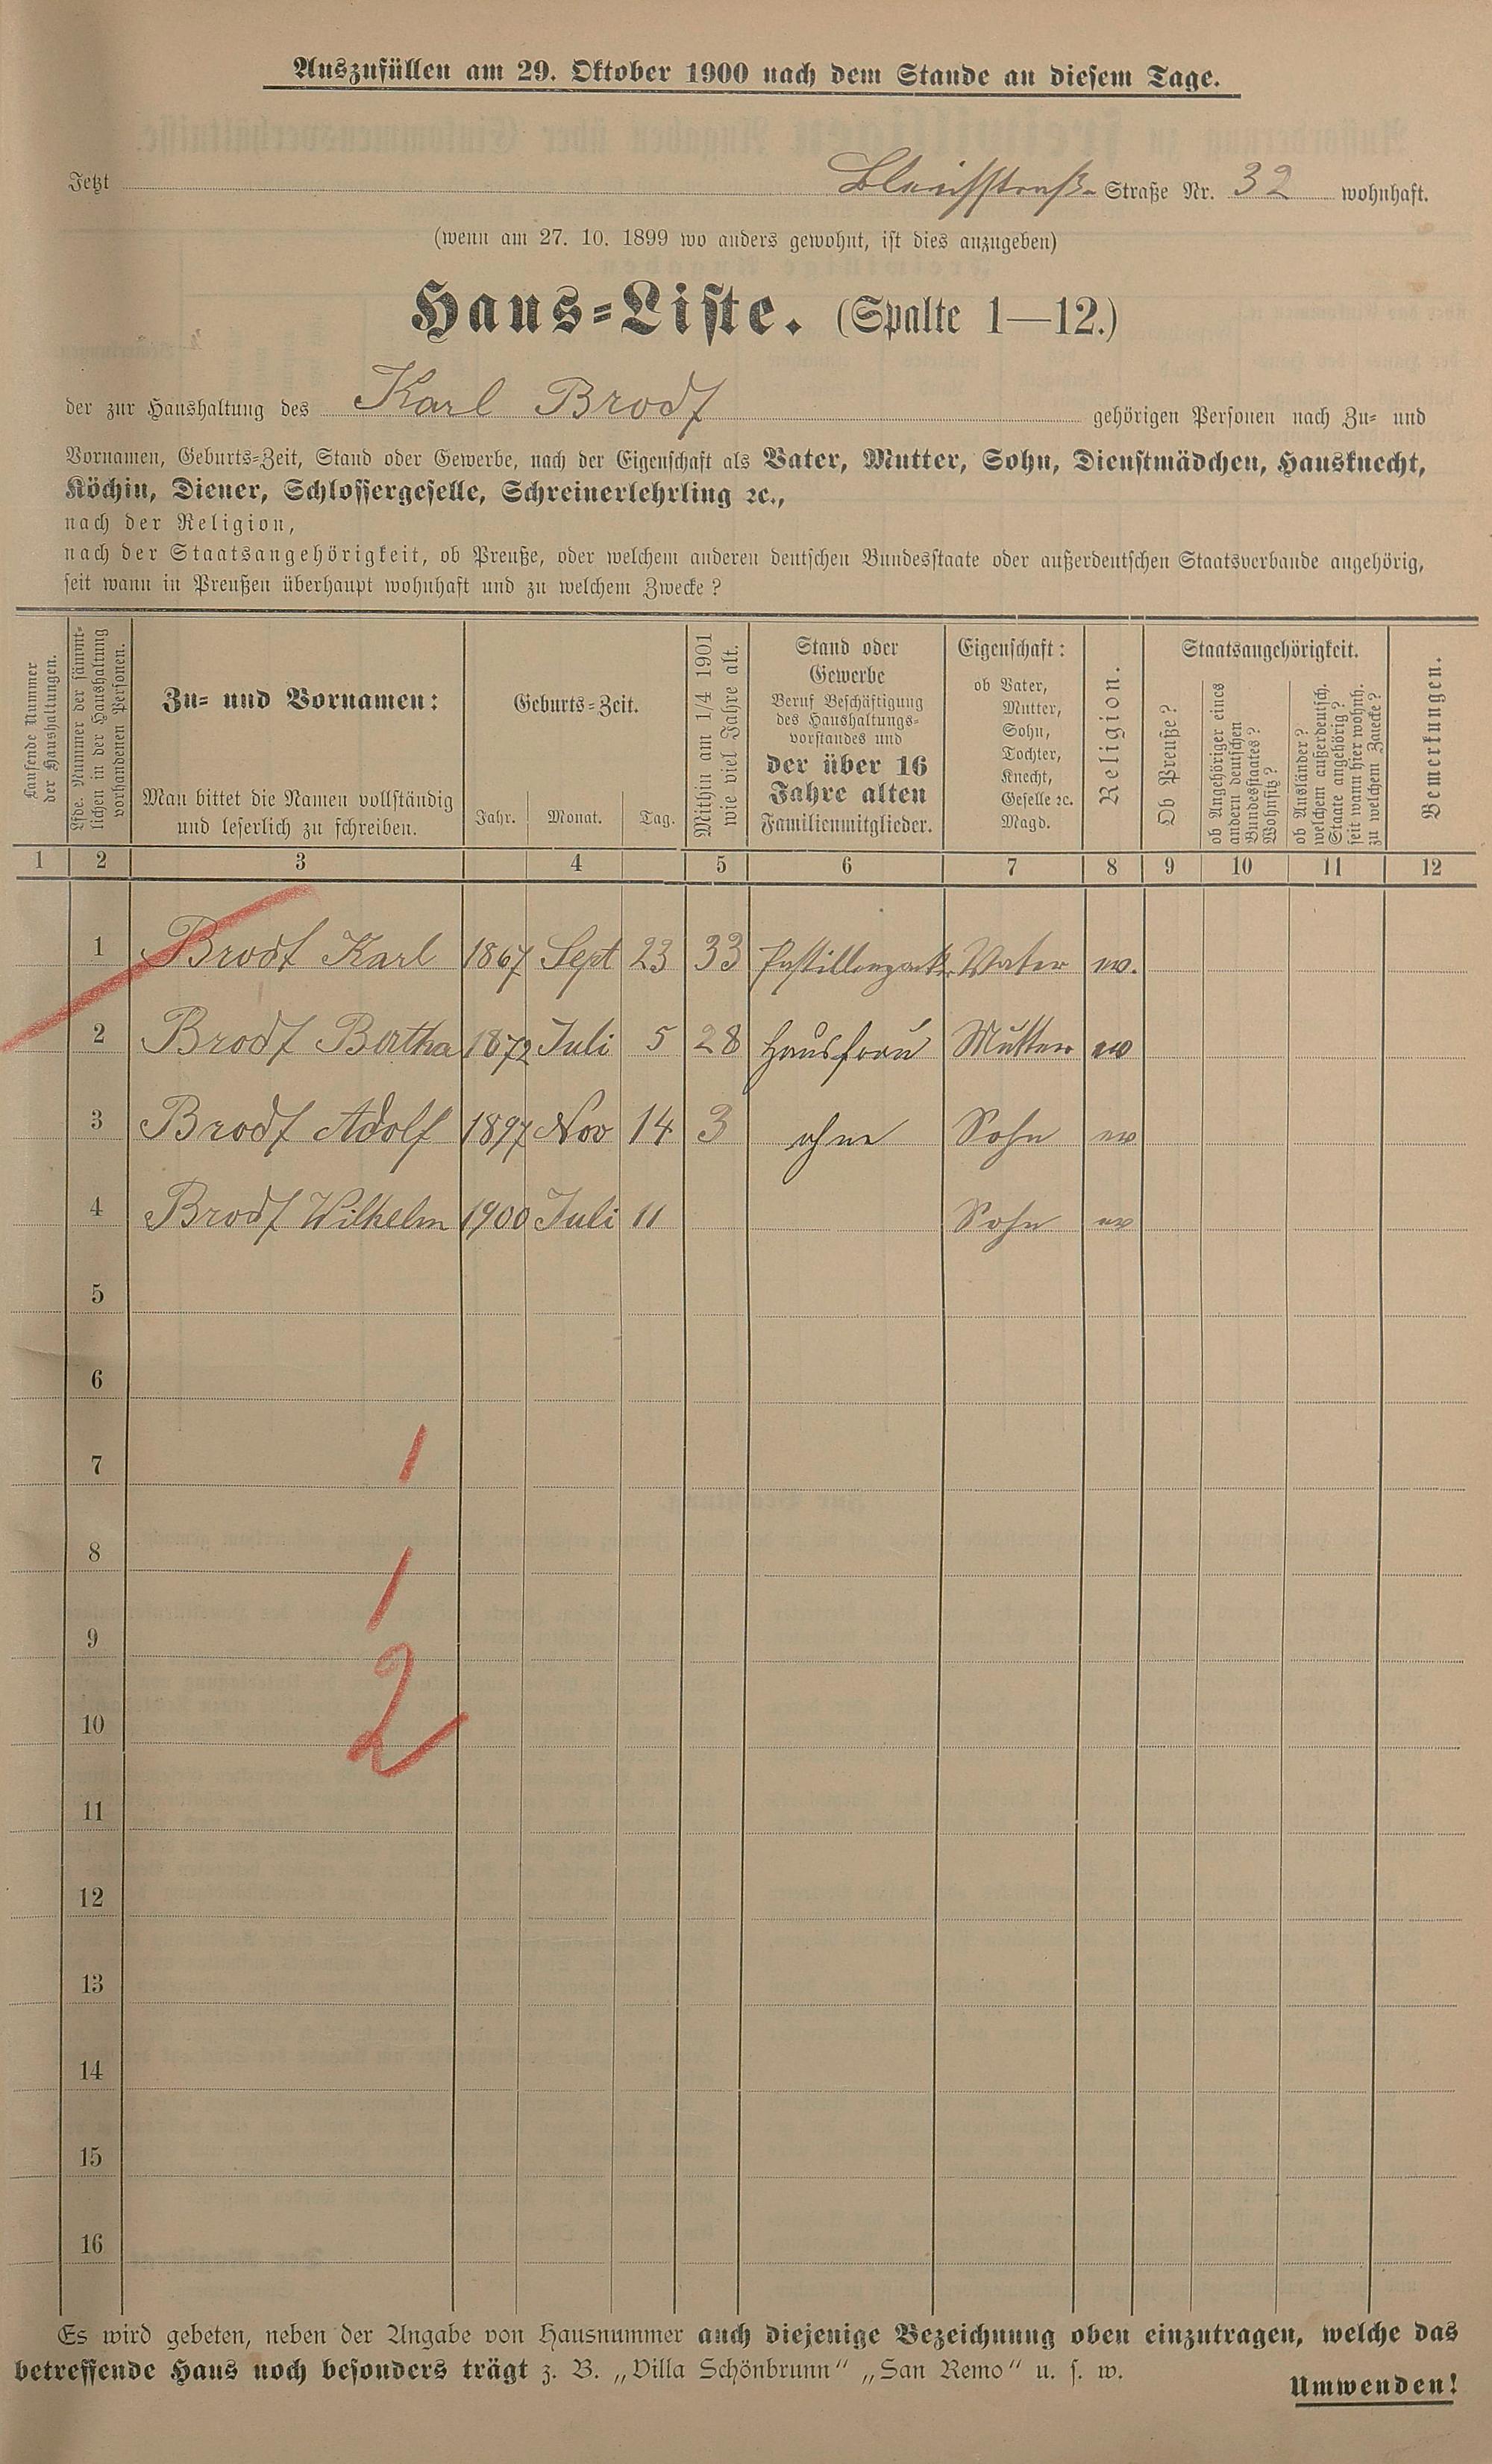 Auszufüllen am 29. Oktober 1900 nach dem Stande an diesem Tage.
Jetzt Bleichstraße Straße Nr. 32 wohnhaft.
(wenn am 27. 10. 1899 wo anders gewohnt, ist dies anzugeben)
Haus-Liste. (Spalte 1—12.)
der zur Haushaltung des Karl Brodt gehörigen Personen nach Zu- und
Vornamen, Geburts-Zeit, Stand oder Gewerbe, nach der Eigenschaft als Vater, Mutter, Sohn, Dienstmädchen, Hausknecht,
Köchin, Diener, Schlossergeselle, Schreinerlehrling ꝛc.,
nach der Religion,
nach der Staatsangehörigkeit, ob Preuße, oder welchem anderen deutschen Bundesstaate oder außerdeutschen Staatsverbande angehörig,
seit wann in Preußen überhaupt wohnhaft und zu welchem Zwecke?
Laufende Nummer
der Haushaltungen.
Lfde. Nummer der sämmt-
lichen in der Haushaltung
vorhandenen Personen.
Zu- und Vornamen:
Man bittet die Namen vollständig
und leserlich zu schreiben.
Geburts-Zeit.
Jahr. Monat. Tag.
Mithin am 1/4 1901
wie viel Jahre alt.
Stand oder
Gewerbe
Beruf Beschäftigung
des Haushaltungs-
vorstandes und
der über 16
Jahre alten
Familienmitglieder.
Eigenschaft:
ob Vater,
Mutter,
Sohn,
Tochter,
Knecht,
Geselle ꝛc.
Magd.
Religion.
Staatsangehörigkeit.
Ob Preuße?
ob Angehöriger eines
andern deutschen
Bundesstaates?
Wohnsitz?
ob Ausländer?
welchem außerdeutsch.
Staate angehörig?
seit wann hier wohnh.
zu welchem Zwecke?
Bemerkungen.
1 2 3 4 5 6 7 8 9 10 11 12
1 Brodt Karl 1867 Sept 23 33 Vater ev.
2 Brodt Bertha 1872 Juli 5 28 Hausfrau Mutter ev
3 Brodt Adolf 1897 Nov 14 3 ohne Sohn ev
4 Brodt Wilhelm 1900 Juli 11 Sohn ev
5
6
7
1
8
1
9
2
10
11
12
13
14
15
16
Es wird gebeten, neben der Angabe von Hausnummer auch diejenige Bezeichnung oben einzutragen, welche das
betreffende Haus noch besonders trägt z. B. „Villa Schönbrunn“ „San Remo“ u. s. w.
Umwenden!